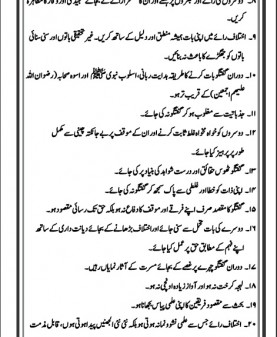 ۸۔ دوسروں کی رائے اور
کریں۔
۹۔ اختلاف رائے میں اپنی بات ہمیشہ منطق اور دلیل کے ساتھ کریں۔ غیر تحقیقی باتوں اور سنی سنائی
باتوں کو جھگڑے کا باعث نہ بنائیں۔
۱۰۔ دوران گفتگو بات کرنے کا طریقہ ہدایت ربانی، اسلوب نبوی ﷺ اور اسوہ صحابہ (رضوان اللہ
علیہم اجمعین) کے قریب تر ہو۔
۱۱۔ جذباتیت سے مغلوب ہو کر گفتگو نہ کی جائے۔
۱۲۔ دوسروں کو خواہ مخواہ غلط ثابت کرنے اور ان کے موقف پر بے جا نکتہ چینی سے مکمل
طور پر پرہیز کیا جائے۔
۱۳۔ گفتگو ٹھوس حقائق اور درست شواہد کی بنیاد پر کی جائے۔
۱۴۔ اپنی ذات کو خطا اور غلطی سے پاک سمجھ کر گفتگو نہ کی جائے۔
۱۵۔ گفتگو کا مقصد صرف اپنے فرقے اور موقف کا دفاع نہ ہو بلکہ حق تک رسائی مقصود ہو۔
۱۶۔ دوسرے کی بات تحمل سے سنی جائے اور اختلاف بڑھانے کے بجائے دیانت داری کے ساتھ
اپنے فہم کے مطابق حق پر عمل کیا جائے۔
۱۷۔ دوران گفتگو چہرے پر غصے کے بجائے مسرت کے آثار نمایاں رہیں۔
۱۸۔ لہجہ کرخت نہ ہو اور آواز زیادہ اونچی نہ ہو۔
۱۹۔ بحث سے مقصود فریقین کا اپنی علمی پیاس بجھانا ہو۔
۲۰۔ اختلاف رائے جس سے علمی نشوونما نہ ہوتی ہو بلکہ نئی نئی الجھنیں پیدا ہوتی ہوں، قابل مذمت